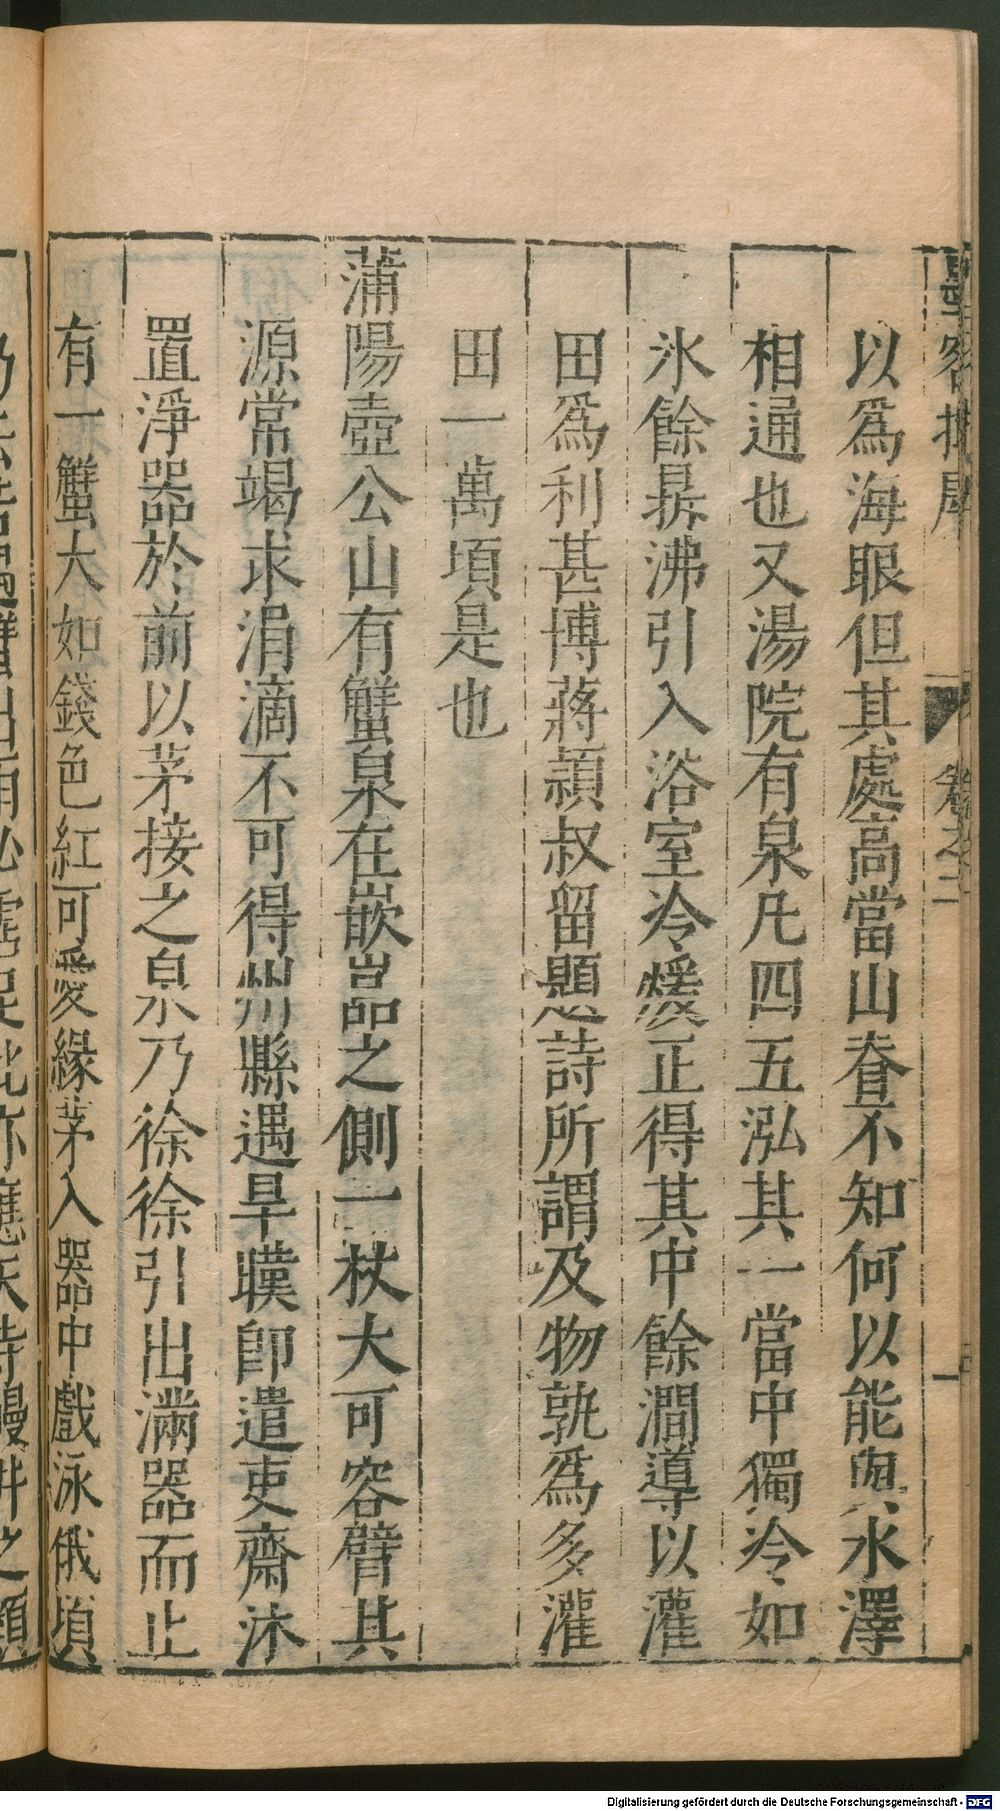 以爲海眼但其處高當山脊不知何以能與水澤
相通也又湯院有泉凡四五泓其一當中獨冷如
氷餘㬥沸引入浴室冷煖正得其中餘澗導以灌
田爲利甚博蔣頴叔留題詩所謂及物孰爲多灌
田一萬頃是也
蒲陽壺公山有蟹泉在嵌嵓之側一杖大可容臂其
源常竭求涓滴不可得州縣遇旱暵卽遣吏齋沐
置淨器於前以茅接之泉乃徐徐引出滿器而止
有一蟹大如錢色紅可愛緣茅入器中戲泳俄頃
墨客揮犀 卷之二 一
Digitalisierung gefördert durch die Deutsche Forschungsgemeinschaft - DFG